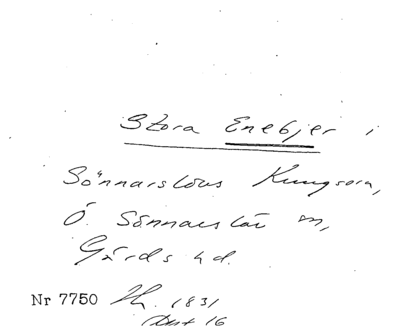 Stora Enebjer i
Sönnarslövs Kungsorn,
Ö. Sönnarslöv sn,
Gärds hd.
Nr 7750 1831
16